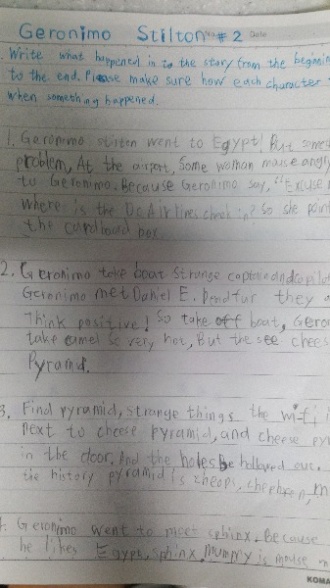 Geronimo Stilton # 2 Date
Write what happened in to the story from the beginin
to the end. Please make sure how each character
when something happened.
1. Geronimo stilton went to Egypt! But some
problem, At the airport, Some woman mouse angly
to Geronimo. Because Geronimo say, "Excuse
where is the Dc Airlines check in? So she poin
the cardboard box.
2. Geronimo take boat Strange captain and copilo
Geronimo met Daniel E. Dendfur they
Think positive! So take off boat, Gero
take camel so very hot, But the see chees
Pyramid.
3. Find pyramid, strange things the wifi, i
next to cheese pyramid, and cheese py
in the door. And the holes be hollowed out.
the history pyramid is cheops, chephren, m
4. Geronimo went to meet sphinx. Because
he likes Egypt, sphinx, mummy is mouse
KOMA